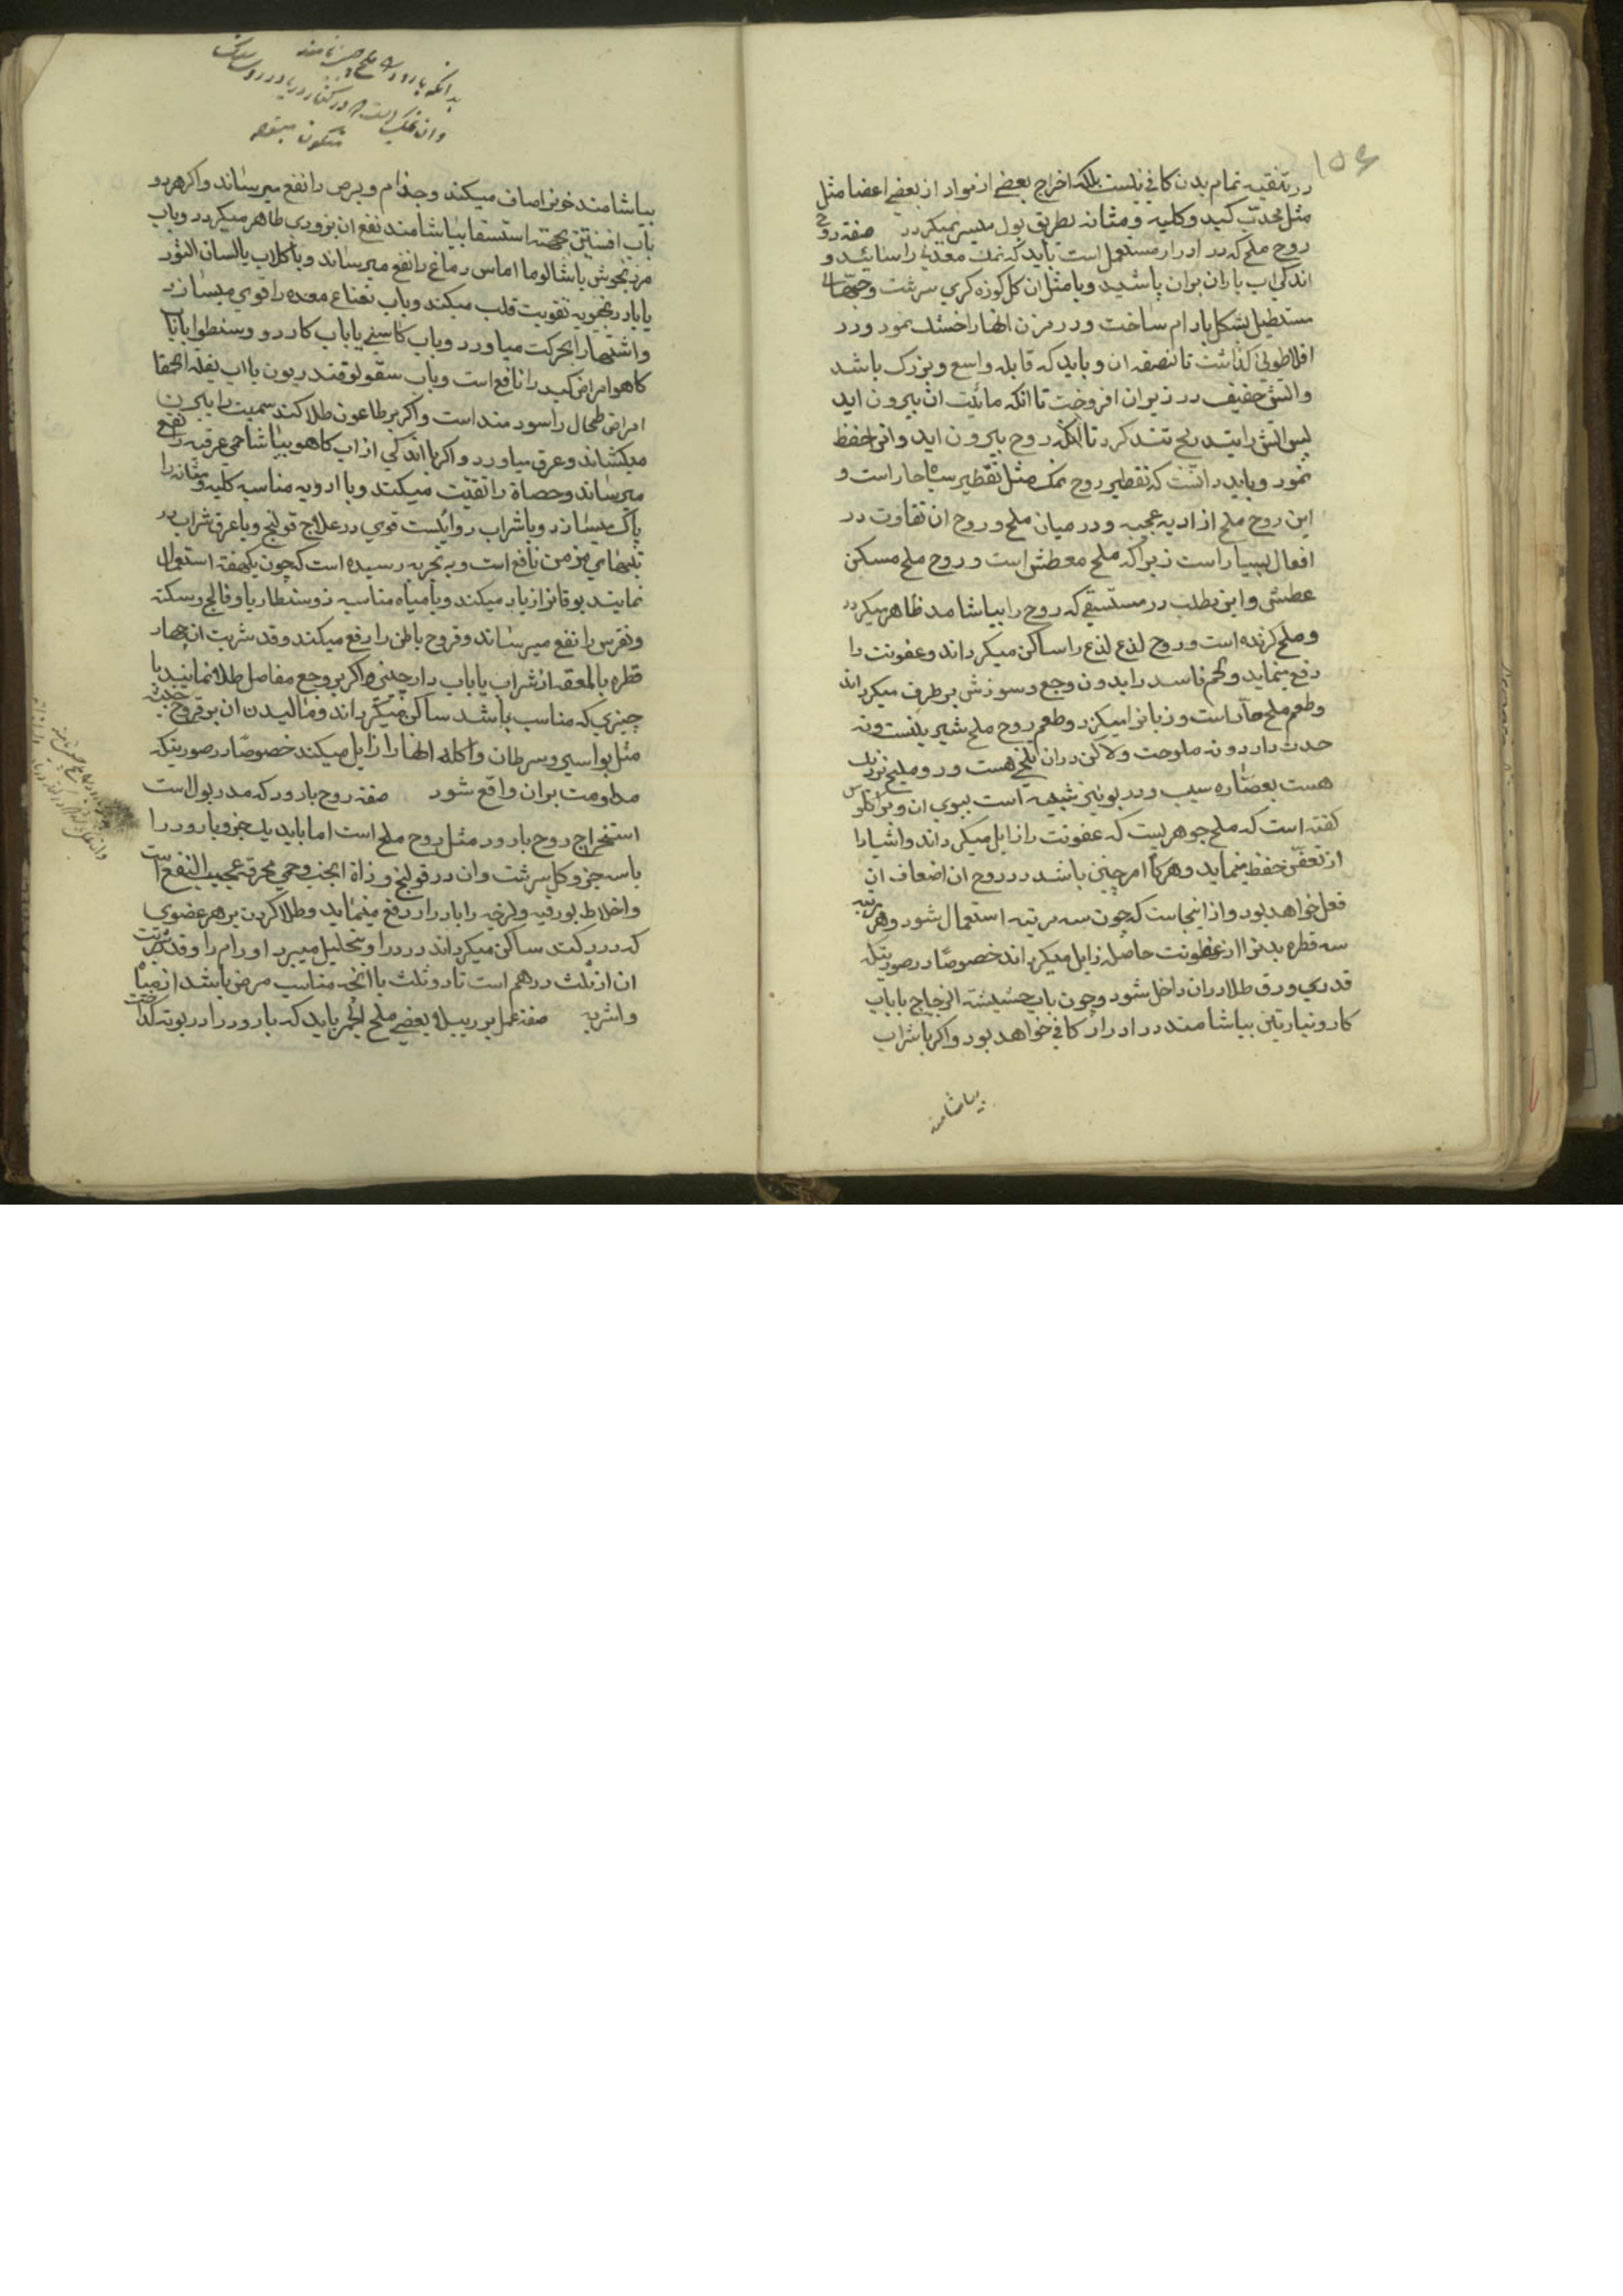 در تنقیه تمام بدن کافی نیست بلکه اخراج بعضی از مواد از بعضی اعضا مثل
مثل محدّب کبد و کلیه و مثانه بطریق بول میسر نمیکردد صفة روح
روح ملح که در ادرار مستعمل است باید که نمک معدنی را سائید و
اندکی اب باران بران پاشید و با مثل ان کل کوزه کری سرشت و حبهای
مستطیل بشکل بادام ساخت و در مزن انها را خشک نمود و در
افلاطونی کذاشت تا نصفه ان و باید که قابله واسع و بزرک باشد
و اتش خفیف در زیر ان افروخت تا انکه مائیت ان بیرون اید
پس اتش را بتدریج تند کرد تا انکه روح بیرون اید و انرا حفظ
نمود و باید دانست که تقطیر روح نمک مثل تقطیر سایر احجار است و
این روح ملح از ادویه عجیبه و در میان ملح و روح ان تفاوت در
افعال بسیار است زیرا که ملح معطش است و روح ملح مسکن
عطش و این مطلب در مستسقی که روح را بیاشامد ظاهر میکردد
و ملح کزنده است و روح لذع لذع را ساکن میکرداند و عفونت را
رفع مینماید و لحم فاسد را بدون وجع و سوزش برطرف میکرداند
و طعم ملح حادّ است و زبانرا میکزد و طعم روح ملح شیرینست و نه
حدت دارد و نه ملوحت ولاکن دران تلخی هست و روملیخ نزدیک
هست بعصاره سیب و در بو نیز شبیه است ببوی ان و براکلوس
کفته است که ملح جوهریست که عفونت را زایل میکرداند و اشیا را
از تعفّن حفظ مینماید و هرکاه امر چنین باشد در روح ان اضعاف ان
فعل خواهد بود و از اینجاست که چون سه مرتبه استعمال شود و هر مرتبه
سه قطره بدنرا از عفونت حاصله زایل میکرداند خصوصًا در صورتیکه
قدری ورق طلا دران داخل شود و چون باب حشیشة الزجاج یا باب
کارونیارتین بیاشامند در ادرار کافی خواهد بود و اکر با شراب
بیاشامند
بدانکه بارود را ملح
بیاشامند خونرا صاف میکند و جذام و برص را نفع میرساند و اکر هر روز
باب افسنتین بجهة استسقا بیاشامند نفع ان بزودی ظاهر میکردد و باب
مرزنجوش یا شالوما اماس دماغ را نفع میرساند و با کلاب یا لسان الثور
یا بادرنجبویه تقویت قلب میکند و باب نعناع معده را قوی میسازد
و اشتها را بحرکت میاورد و باب کاسنی یا باب کاردو و سنطوا یا باب
کاهو امراض کبد را نافع است و باب سقولوقندریون یا اب بقلة الحمقا
امراض طحال را سودمند است و اکر بر طاعون طلا کنند سمیت را بیرون
میکشاند و عرق میاورد و اکر با اندکی از اب کاهو بیاشامند حمی عرقیه را نفع
میرساند و حصاة را تفتیت میکند و با ادویه مناسبه کلیه و مثانه را
پاک میسازد و با شراب دوائیست قوی در علاج قولنج و با عرق شراب در
تبهای مزمن نافع است و به تجربه رسیده است که چون یکهفته استعمال
نمایند یوقانرا زیاد میکند و با میاه مناسبه ذوسنطاریا و فالج و سکته
و نقرس را نفع میرساند و قروح باطن را رفع میکند و قدر شربت ان چهار
قطره یا لمعقه از شراب یا باب دارچینی و اکر بر وجع مفاصل طلا نمایند با
چیزی که مناسب باشد ساکن میکرداند و مالیدن ان بر قروح خبیثه
مثل بواسیر و سرطان و اکله انها را زایل میکند خصوصًا در صورتیکه
مداومت بران واقع شود صفة روح بارود که مدر بول است
استخراج روح بارود مثل روح ملح است اما باید یک جزو بارود را
با سه جزو کل سرشت و ان در قولنج و ذاة الجنب و حمی محرقه عجیب النفع است
و اخلاط بورقیه و لزجه را بادرار دفع مینماید و طلا کردن بر هر عضوی
که درد کند ساکن میکرداند درد را و بتحلیل میبرد اورام را و قدر شربت
ان از ثلث درهم است تا دو ثلث با انچه مناسب مرض باشد از میاه
و اشربه صفة عمل بعضی ملح الجمر باید که بارود را در بوته کداخت